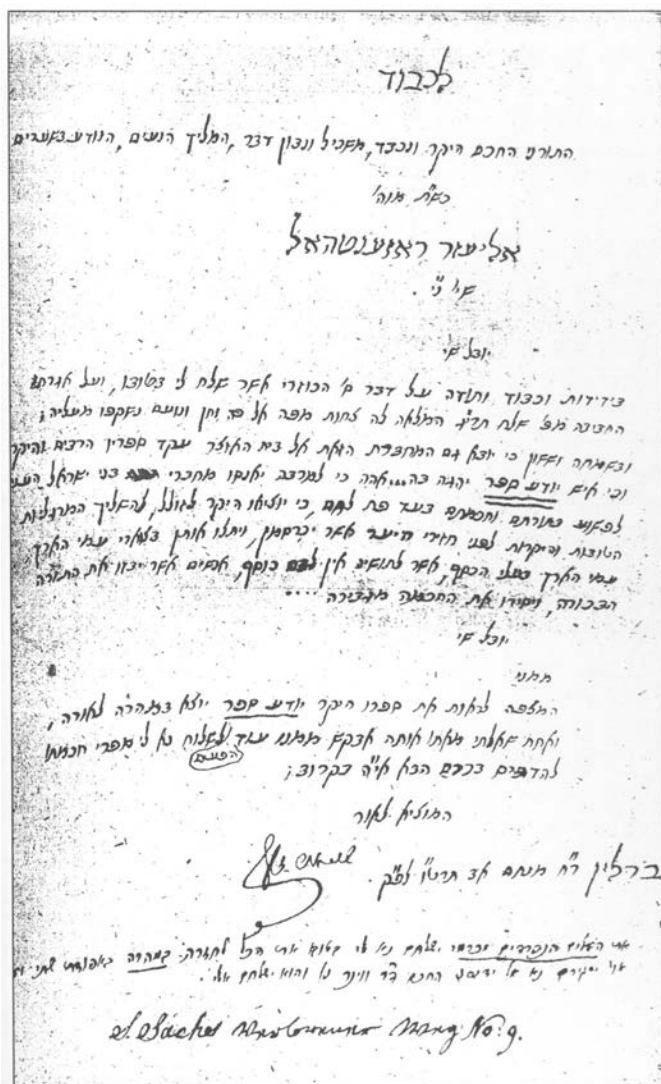 לכבוד
התורני החכם היקר ונכבד, משכיל ונבון דבר, המליץ הנעים, הנודע בשערים
כש״ת מוה׳
אליעזר ראזענטהאל
שי׳ ני״
יובל שי
בידידות וכבוד ותודה על דבר ס׳ הכוזרי אשר שלח לי בטובו, ועל אגרתו
החביבה מפ׳ שלח המלאה לה צחות מפה אל פה וחן ונועם נשקפו מעליה;
ובשמחה וששון כי יוצא גם המחברת הזאת אל בית האוצר עקד ספריו הרבים והיקר
וכי איש יודע ספר יהגה בה... אהה כי למרבה יאנסו מחברי בני ישראל
לפשוע בתורתם וחכמתם בעד פת לחם, כי יוציאו היקר לזולל, להשליך המרגליות
הטובות והיקרות לפני חזירי היער אשר יכרסמון, ויתלו אותן בצוארי עמי הארץ,
עמי הארץ בעלי הכסף, אשר לתושיה אין להם כוסף, אנשים אשר יבזו את התורה
הבכורה, ויסירו את החכמה מגבירה ....
יובל שי
ממני
המצפה לראות את ספרו היקר יודע ספר יוצא במהרה לאורה,
ואחת שאלתי מאתו אותה אבקש ממנו עוד הפעם לשלוח נא לי מפרי חכמתו
להדפיס בכרם הבא אי״ה בקרוב;
המוציא לאור
ברלין ר״ח מנחם אב תרט״ו לפ״ק
את העלים הנפרדים מכרמי ישלחם נא לי בטובו את הכל לחזרה במהרה
נא אל ידידי החכם והוא ישלחם אלי.
S. Sachs No. 9.